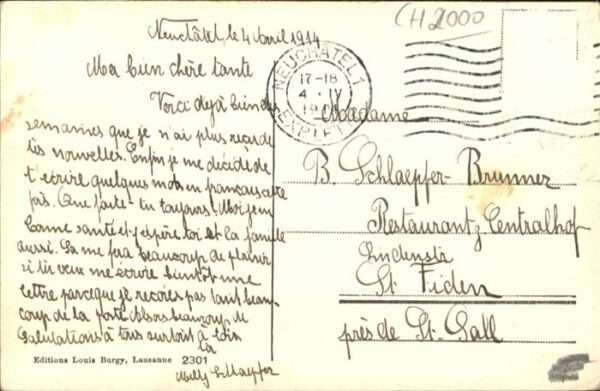 Neuchâtel, le 4 Avril 1914
CH 2000
Ma bien chère tante
NEUCHATEL 1
17-18
4. IV
EXP. LETT.
Voici déjà bien des
semaines que je n'ai plus reçu de
tes nouvelles. Enfin je me décide de
t'écrire quelques mots en français cette
fois. Que fais-tu toujours. Moi je
bonne santé et j'espère toi et la famille
aussi. Ça me fera beaucoup de plaisir
si tu veux me écrire bientôt une
lettre parceque je reçois pas tant beau-
coup de la poste. Alors beaucoup de
salutations à tous surtout à toi
la
Milly Schlaepfer
Madame
B. Schlaepfer-Brunner
Restaurant z. Centralhof
Lindenstr
St Fiden
près de St. Gall
Editions Louis Burgy, Lausanne 2301